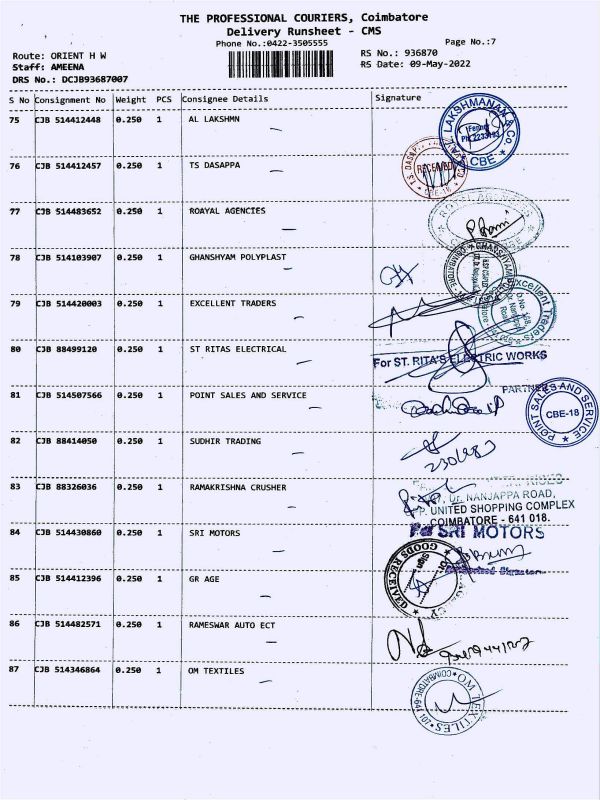 THE PROFESSIONAL COURIERS, Coimbatore
Delivery Runsheet - CMS
Phone No.:0422-3505555
Page No.:7
Route: ORIENT H W
RS No.: 936870
Staff: AMEENA
RS Date: 09-May-2022
DRS No.: DCJB93687007
S No Consignment No Weight PCS Consignee Details Signature
75 CJB 514412448 0.250 1 AL LAKSHMN
LAKSHMANAN & CO. CBE
76 CJB 514412457 0.250 1 TS DASAPPA
T.S. DASAPPA RECEIVED CBE-18
77 CJB 514483652 0.250 1 ROAYAL AGENCIES
78 CJB 514103907 0.250 1 GHANSHYAM POLYPLAST
79 CJB 514420003 0.250 1 EXCELLENT TRADERS
Excellent Traders
80 CJB 88499120 0.250 1 ST RITAS ELECTRICAL
For ST. RITA'S ELECTRIC WORKS
PARTNER
81 CJB 514507566 0.250 1 POINT SALES AND SERVICE
POINT SALES AND SERVICE CBE-18
82 CJB 88414050 0.250 1 SUDHIR TRADING
83 CJB 88326036 0.250 1 RAMAKRISHNA CRUSHER
DR. NANJAPPA ROAD,
UNITED SHOPPING COMPLEX
COIMBATORE - 641 018.
84 CJB 514430860 0.250 1 SRI MOTORS
For SRI MOTORS
85 CJB 514412396 0.250 1 GR AGE
GOODS RECEIVED
Sign
86 CJB 514482571 0.250 1 RAMESWAR AUTO ECT
87 CJB 514346864 0.250 1 OM TEXTILES
OM TEXTILES